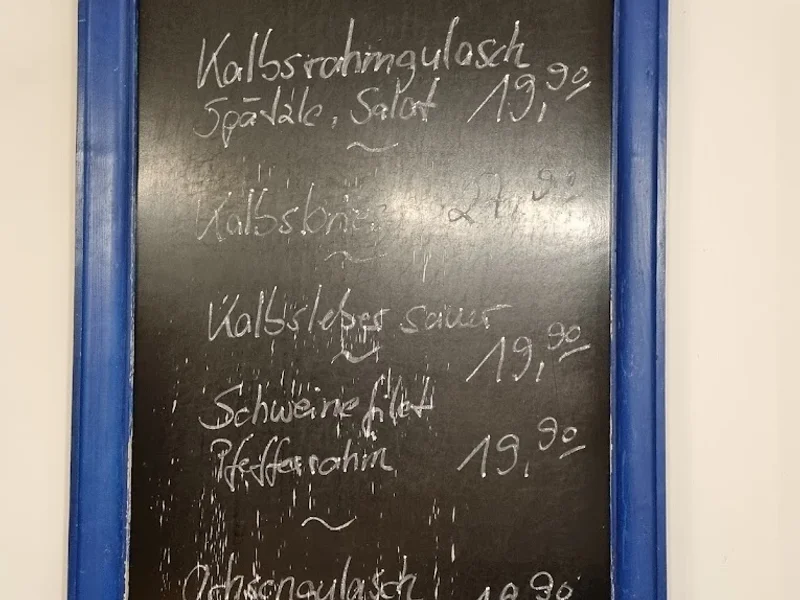 Kalbsrahmgulasch
Spätzle, Salat 19,90
~
Kalbsbries
~
Kalbsleber sauer
19,90
~
Schweinefilet
Pfefferrahm 19,90
~
Ochsengulasch